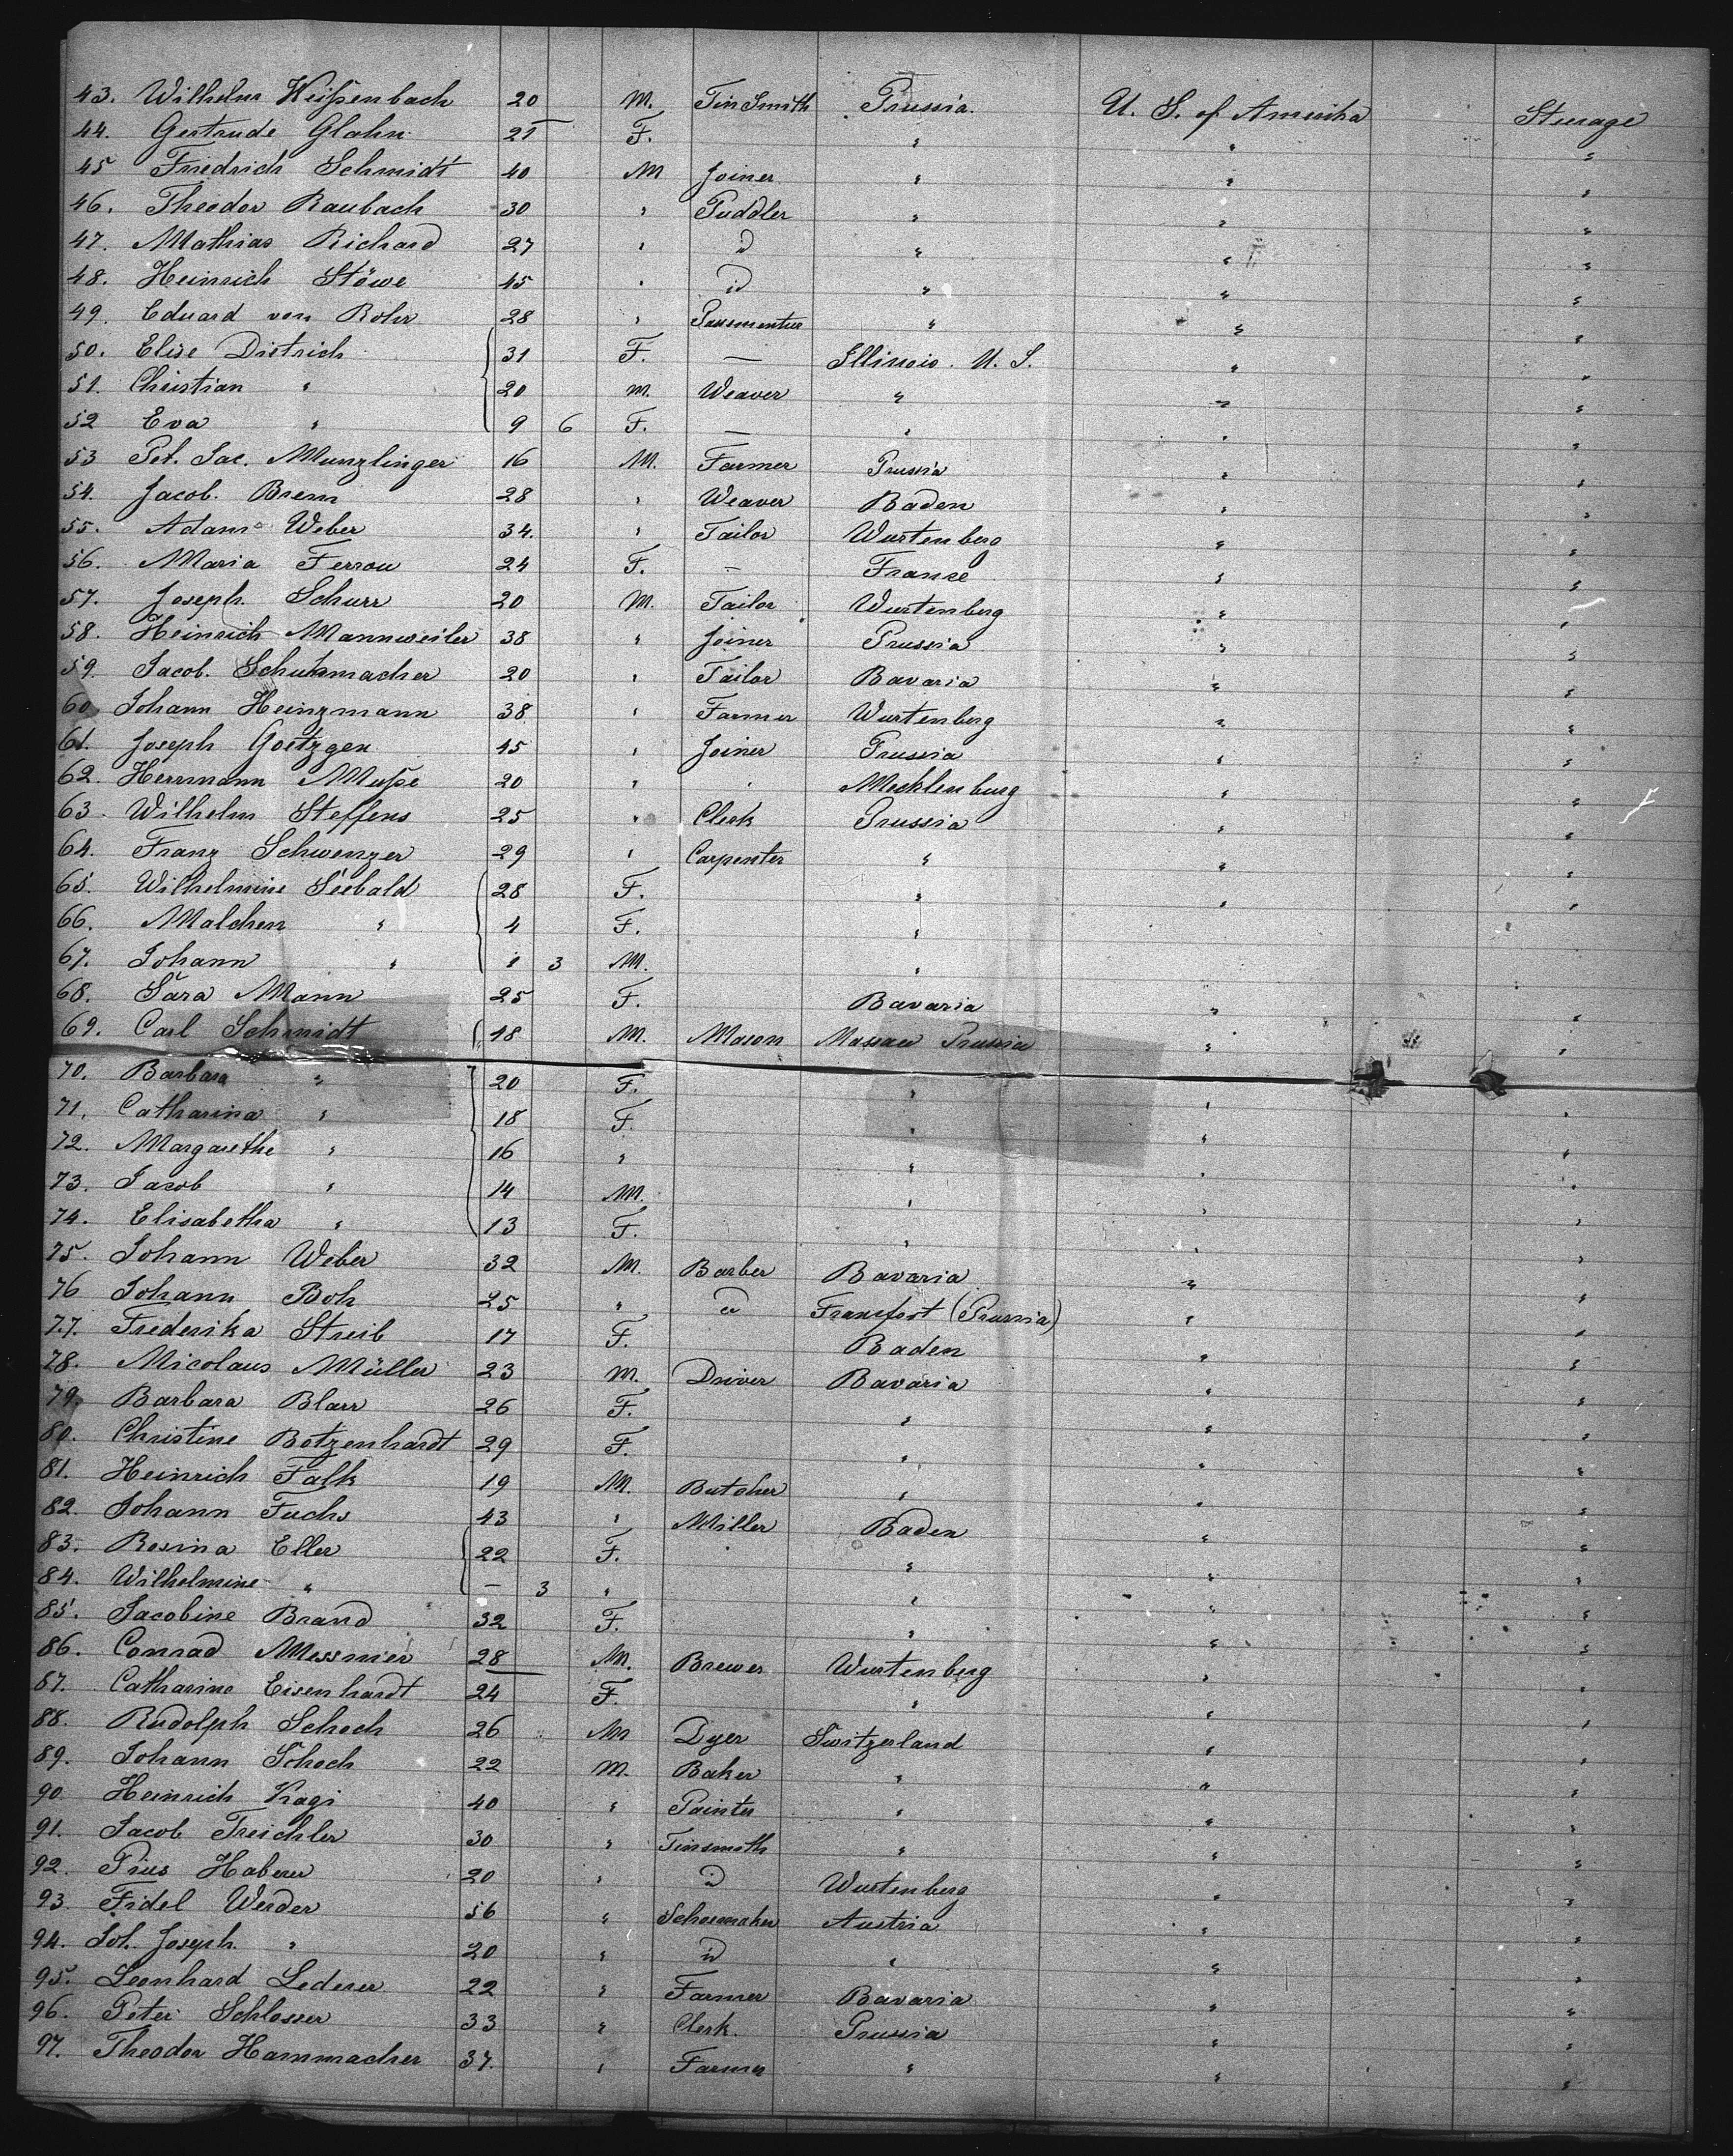 43. Wilhelm Weißenbach 20 M. Tin Smith Prussia. U. S. of Amerika Steerage
44. Gertrude Glahn 21 F. " " "
45 Friedrich Schmidt 40 M Joiner " " "
46. Theodor Raubach 30 " Puddler " " "
47. Mathias Richard 27 " id " " "
48. Heinrich Stöwe 45 " id " " "
49. Eduard von Rohr 28 " " " "
50. Elise Dietrich 31 F. — Illinois. U. S. " "
51. Christian " 20 M. Weaver " " "
52 Eva " 9 6 F. — " " "
53 Pet. Jac. Munzlinger 16 M. Farmer Prussia " "
54. Jacob. Brenn 28 " Weaver Baden " "
55. Adam Weber 34. " Tailor Wurtenberg " "
56. Maria Ferrou 24 F. — Franse " "
57. Joseph Schurr 20 M. Tailor Wurtenberg " "
58. Heinrich Mannweiler 38 " Joiner Prussia " "
59. Jacob. Schuhmacher 20 " Tailor Bavaria " "
60 Johann Heinzmann 38 " Farmer Wurtenberg " "
61. Joseph Goetzgen 45 " Joiner Prussia " "
62. Herrmann Muße 20 " " Mecklenburg " "
63. Wilhelm Steffens 25 " Clerk Prussia " "
64. Franz Schwenzer 29 " Carpenter " " "
65. Wilhelmine Seebald 28 F. " " "
66. Malchen " 4 F. " " "
67. Johann " 1 3 M. " " "
68. Sara Mann 25 F. Bavaria " "
69. Carl Schmidt 48 M. Mason Massau Prussia " "
70. Barbara " 20 F. " " "
71. Catharina " 18 F. " " "
72. Margarethe " 16 " " " "
73. Jacob " 14 M. " " "
74. Elisabetha " 13 F. " " "
75. Johann Weber 32 M. Barber Bavaria " "
76 Johann Boh 25 " id Francfort (Prussia) " "
77. Frederika Streib 17 F. Baden " "
78. Nicolaus Müller 23 M. Driver Bavaria " "
79. Barbara Blarr 26 F. " " "
80. Christine Botzenhardt 29 F. " " "
81. Heinrich Falk 19 M. Butcher " " "
82. Johann Fuchs 43 " Miller Baden " "
83. Rosina Eller 22 F. " " "
84. Wilhelmine " — 3 " " " "
85. Jacobine Brand 32 F. " " "
86. Conrad Messmer 28 M. Brewer Wurtenberg " "
87. Catharine Eisenhardt 24 F. " " "
88. Rudolph Schoch 26 M Dyer Switzerland " "
89. Johann Schoch 22 M. Baker " " "
90. Heinrich Kagi 40 " Painter " " "
91. Jacob Treichler 30 " Tinsmith " " "
92. Pius Haberer 20 " id Wurtenberg " "
93. Fidel Werder 56 " Schoemaker Austria " "
94. Joh. Joseph. " 20 " id " " "
95. Leonhard Lederer 22 " Farmer Bavaria " "
96. Peter Schlosser 33 " Clerk. Prussia " "
97. Theodor Hammacher 37. " Farmer " " "